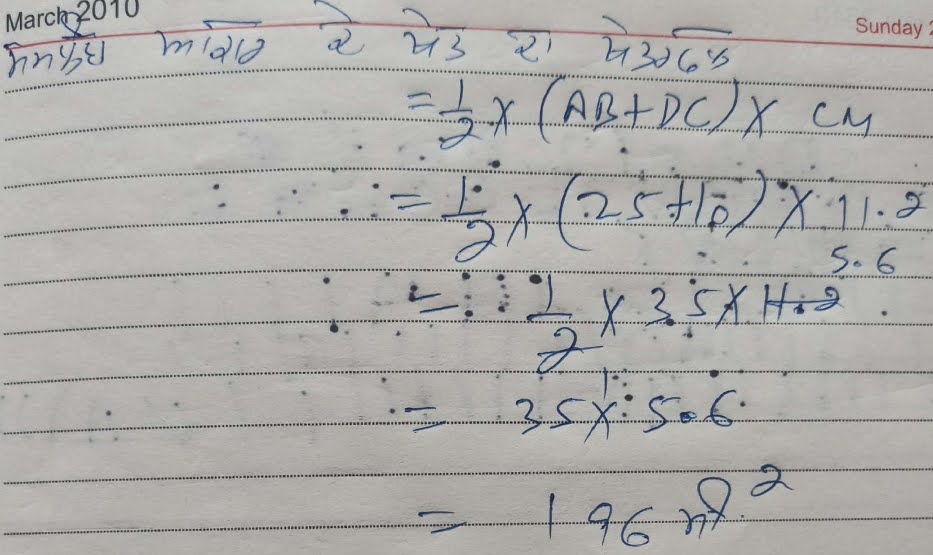 March 2010 Sunday 2
ਆਕਾਰ ਦੇ ਖੇਤ ਦਾ ਖੇਤਰਫਲ
= 1/2 × (AB+DC) × CM
= 1/2 × (25+10) × 11.2
5.6
= 1/2 × 35 × 11.2
= 35 × 5.6
= 196 ਮੀ.²